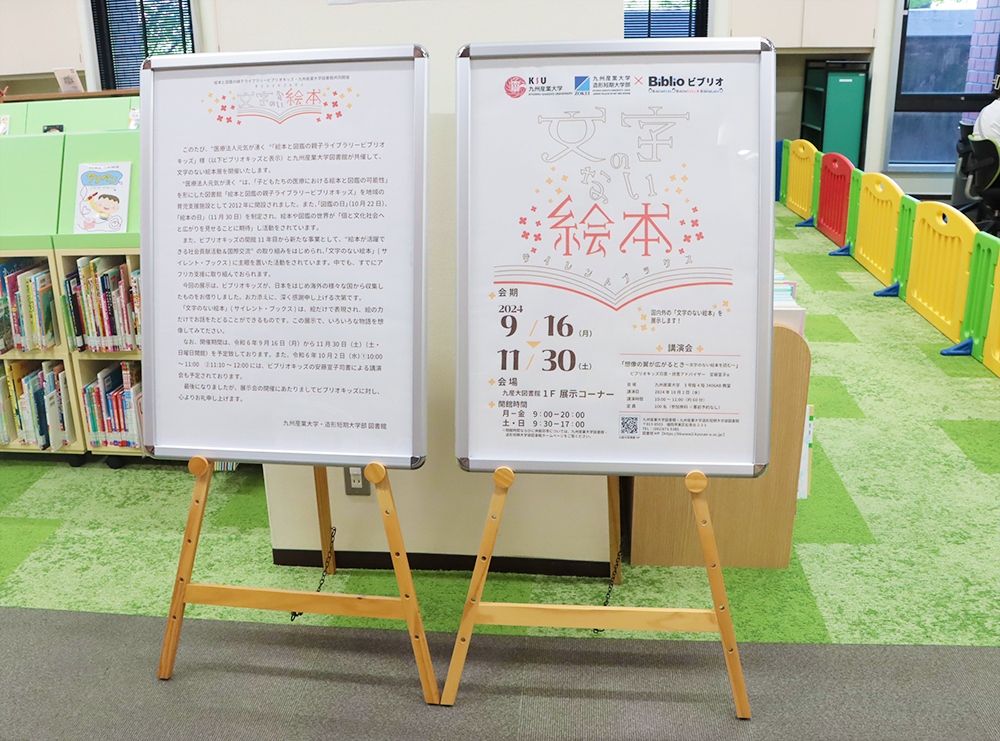 絵本と図鑑の親子ライブラリービブリオキッズ・九州産業大学図書館共同開催
文字のない絵本
このたび、"医療法人元気が湧く"「絵本と図鑑の親子ライブラリービブリオ
キッズ」様(以下ビブリオキッズと表示)と九州産業大学図書館が共催して、
文字のない絵本展を開催いたします。
"医療法人元気が湧く"は、「子どもたちの医療における絵本と図鑑の可能性」
を形にした図書館「絵本と図鑑の親子ライブラリービブリオキッズ」を地域の
育児支援施設として2012年に開設されました。また、「図鑑の日」(10月22日)、
「絵本の日」(11月30日)を制定され、絵本や図鑑の世界が「個と文化社会へ
と広がりを見せることに期待」し活動をされています。
また、ビブリオキッズの開館11年目から新たな事業として、"絵本が活躍で
きる社会貢献活動&国際交流"の取り組みをはじめられ、「文字のない絵本」(サ
イレント・ブックス)に主眼を置いた活動をされています。中でも、すでにア
フリカ支援に取り組んでおられます。
今回の展示は、ビブリオキッズが、日本をはじめ海外の様々な国から収集し
たものをお借りしました。お力添えに、深く感謝申し上げる次第です。
「文字のない絵本」(サイレント・ブックス)は、絵だけで表現され、絵の力
だけでお話をたどることができるものです。この展示で、いろいろな物語を想
像してみてください。
なお、開催期間は、令和6年9月16日(月)から11月30日(土)(土・
日曜日開館)を予定致しております。また、令和6年10月2日(水)(①10:00
~11:00 ②11:10~12:00)には、ビブリオキッズの安藤宣子司書による講演
会も予定されております。
最後になりましたが、展示会の開催にあたりましてビブリオキッズに対し、
心よりお礼申し上げます。
九州産業大学・造形短期大学部 図書館
KSU
九州産業大学
九州産業大学
造形短期大学部
ZOKEI
×
Biblio ビブリオ
文字
の
ない
絵本
サイレントブックス
会 期
2024
9/16(月)
11/30(土)
国内外の「文字のない絵本」を
展示します!
会 場
九産大図書館 1F 展示コーナー
開館時間
月-金 9:00-20:00
土・日 9:30-17:00
講演会
「想像の翼が広がるとき~文字のない絵本を読む~」
会 場 九州産業大学
講演日 2024年10月2日(水)
講演時間 10:00~11:00(約60分)
定 員 100名(参加無料/事前予約なし)